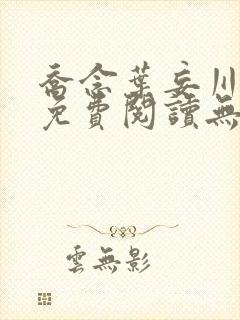 喬念葉妄川
免費閱讀無
雲無影